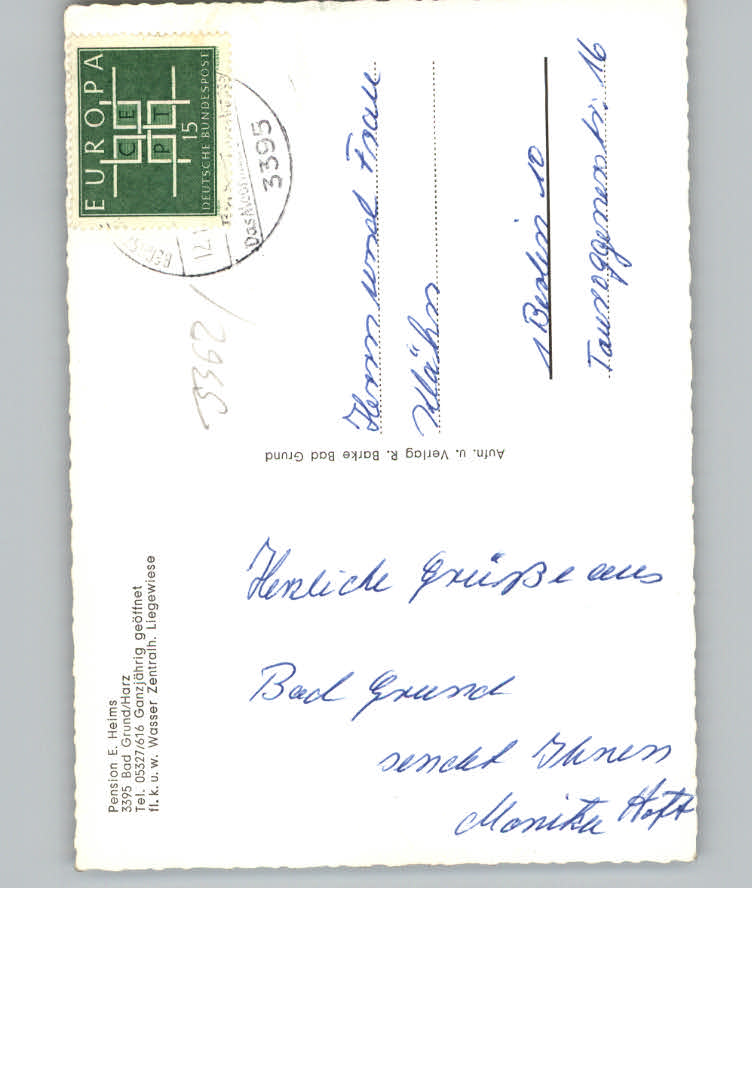 Pension E. Heims
3395 Bad Grund/Harz
Tel. 05327/616 Ganzjährig geöffnet
fl. k. u. w. Wasser Zentralh. Liegewiese
Herzliche Grüße aus
Bad Grund
sendet Ihnen
Monika Hoft
Aufn. u. Verlag R. Barke Bad Grund
EUROPA
CEPT
15
DEUTSCHE BUNDESPOST
3395
3362/
Herrn und Frau
Klähn
1 Berlin 10
Tauroggenerstr. 16